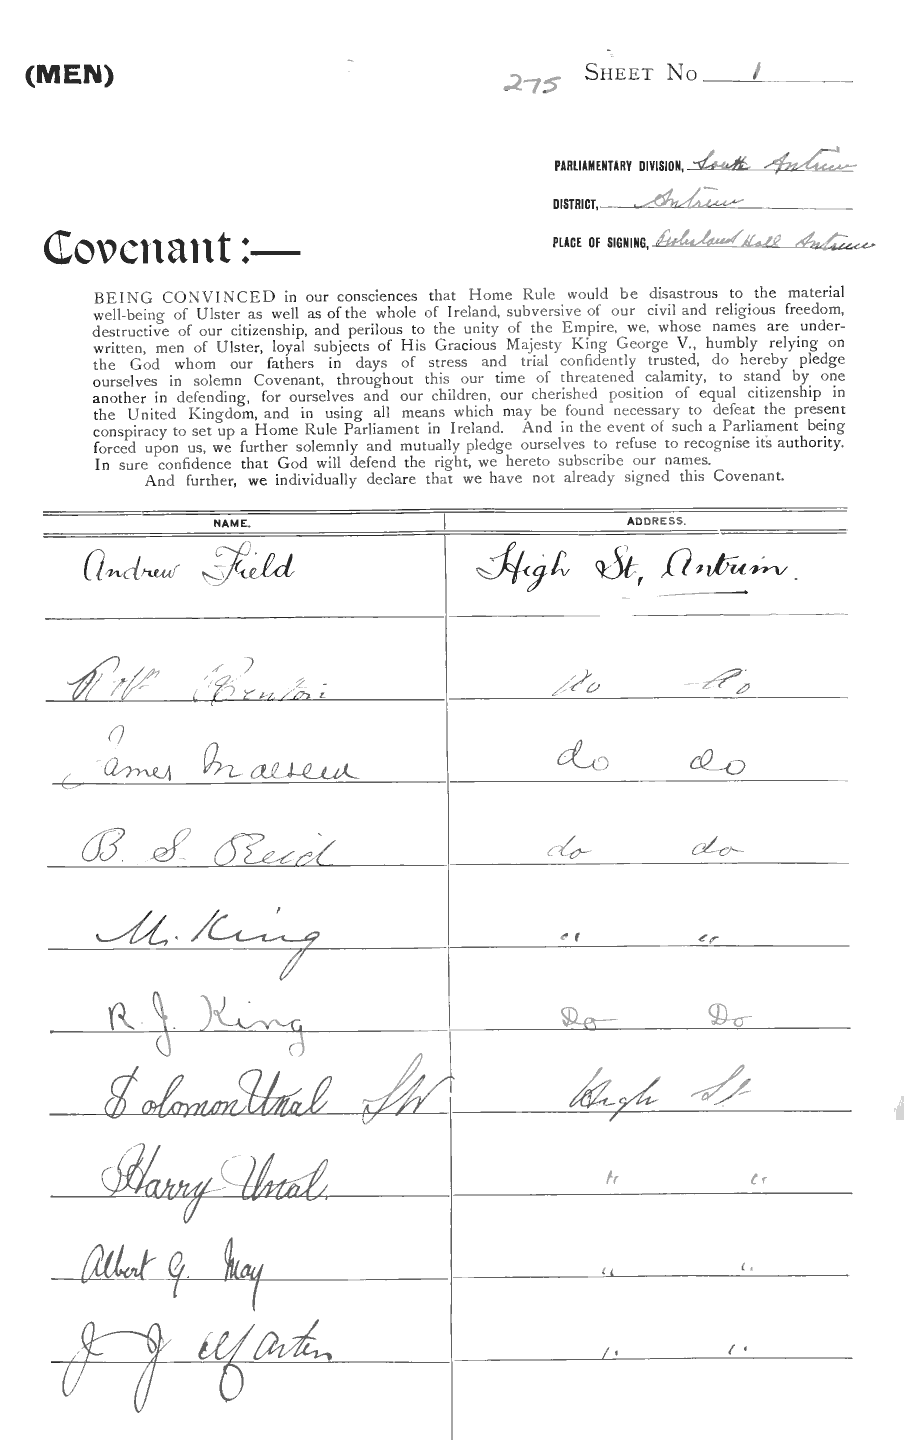 (MEN)
275 SHEET No 1
PARLIAMENTARY DIVISION, South Antrim
DISTRICT, Antrim
PLACE OF SIGNING, Hall Antrim
Covenant :—
BEING CONVINCED in our consciences that Home Rule would be disastrous to the material
well-being of Ulster as well as of the whole of Ireland, subversive of our civil and religious freedom,
destructive of our citizenship, and perilous to the unity of the Empire, we, whose names are under-
written, men of Ulster, loyal subjects of His Gracious Majesty King George V., humbly relying on
the God whom our fathers in days of stress and trial confidently trusted, do hereby pledge
ourselves in solemn Covenant, throughout this our time of threatened calamity, to stand by one
another in defending, for ourselves and our children, our cherished position of equal citizenship in
the United Kingdom, and in using all means which may be found necessary to defeat the present
conspiracy to set up a Home Rule Parliament in Ireland. And in the event of such a Parliament being
forced upon us, we further solemnly and mutually pledge ourselves to refuse to recognise its authority.
In sure confidence that God will defend the right, we hereto subscribe our names.
And further, we individually declare that we have not already signed this Covenant.
NAME. ADDRESS.
Andrew Field High St, Antrim.
do do
James do do
B. S. Reid do do
M. King " "
R. J. King Do Do
Solomon High St
Harry " "
Albert G. May " "
J J " "